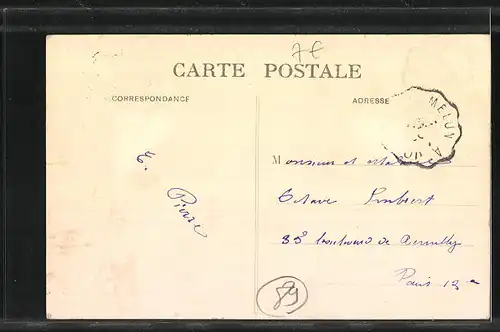 7€
CARTE POSTALE
CORRESPONDANCE
ADRESSE
MELUN
Monsieur et Madame
E.
Octave Imbert
Pierre
35 boulevard de Reuilly
Paris 12e
89